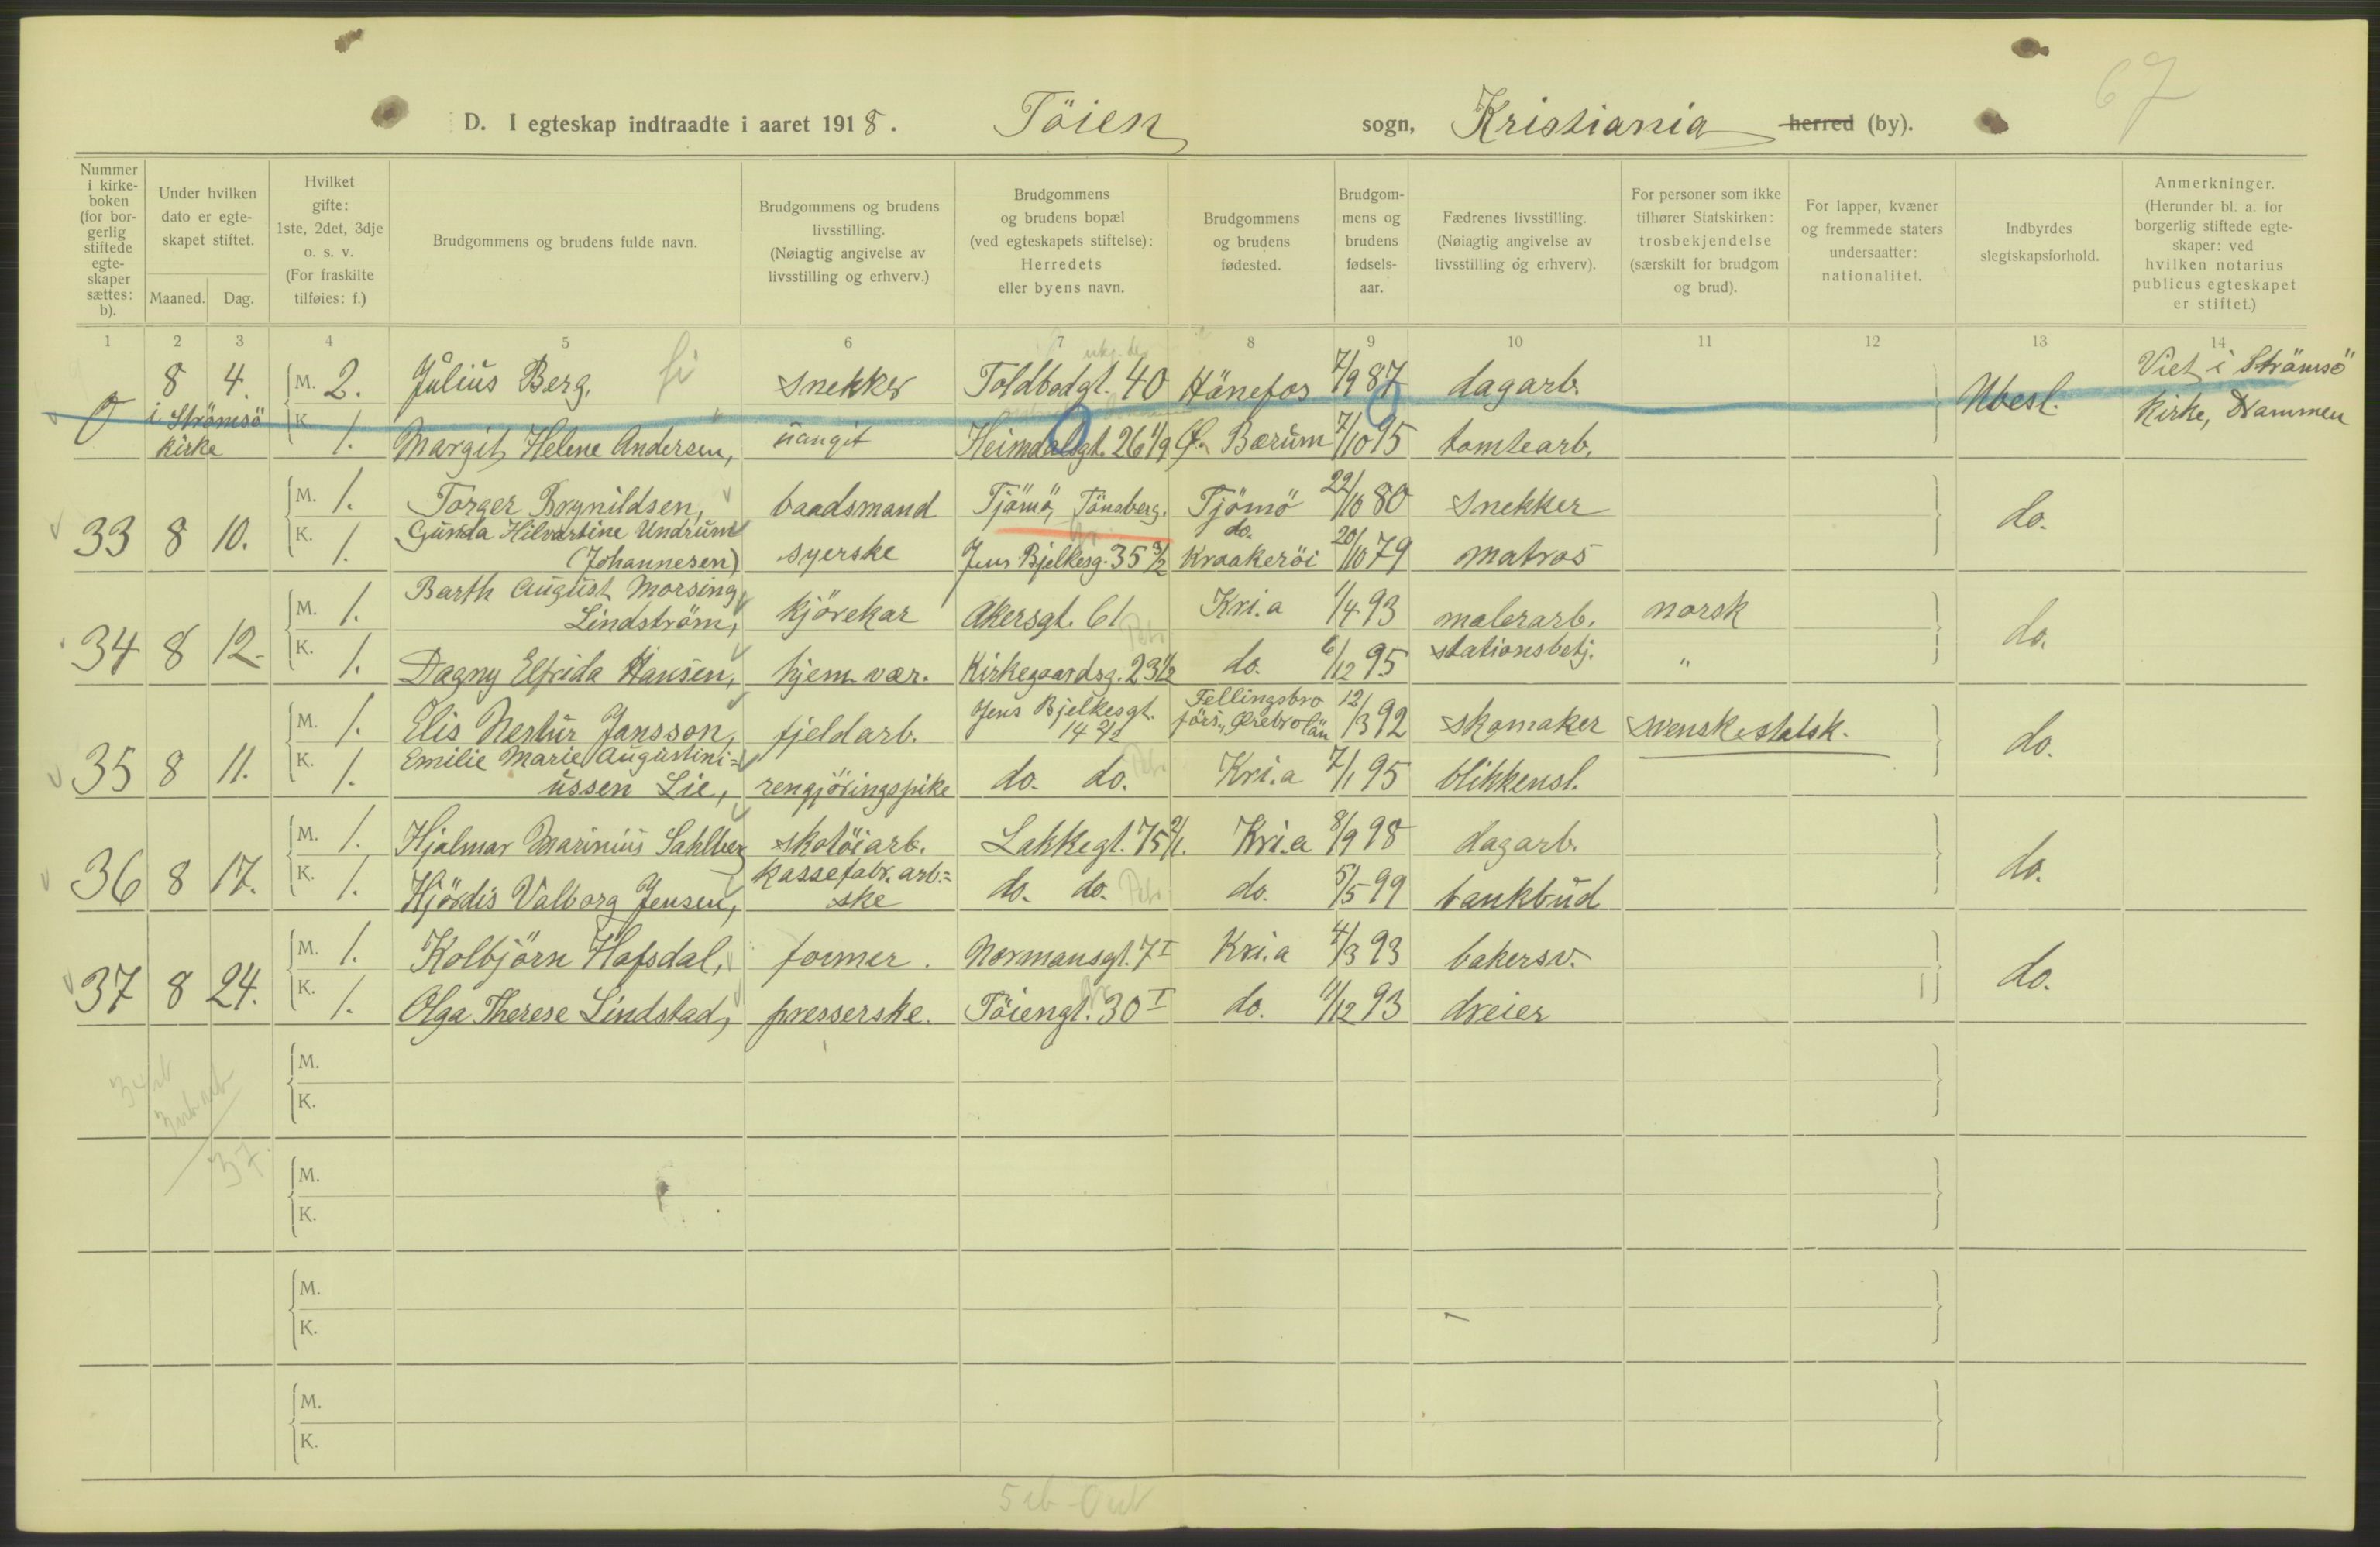 67
D. I egteskap indtraadte i aaret 1918. Töien sogn, Kristiania herred (by).
Nummer i kirke-boken (for bor-gerlig stiftede egte-skaper sættes: b).
Under hvilken dato er egte-skapet stiftet.
Maaned. Dag.
Hvilket gifte: 1ste, 2det, 3dje o. s. v. (For fraskilte tilføies: f.)
Brudgommens og brudens fulde navn.
Brudgommens og brudens livsstilling. (Nøiagtig angivelse av livsstilling og erhverv.)
Brudgommens og brudens bopæl (ved egteskapets stiftelse): Herredets eller byens navn.
Brudgommens og brudens fødested.
Brudgom-mens og brudens fødsels-aar.
Fædrenes livsstilling. (Nøiagtig angivelse av livsstilling og erhverv).
For personer som ikke tilhører Statskirken: trosbekjendelse (særskilt for brudgom og brud).
For lapper, kvæner og fremmede staters undersaatter: nationalitet.
Indbyrdes slegtskapsforhold.
Anmerkninger. (Herunder bl. a. for borgerlig stiftede egte-skaper: ved hvilken notarius publicus egteskapet er stiftet.)
1 2 3 4 5 6 7 8 9 10 11 12 13 14
8 4. M. 2. Julius Berg, snekker Toldbodgt. 40 Hönefos 7/9 87 dagarb. Ubesl. Viet i Strömsö
0 i Strömsö kirke K. 1. Margit Helene Andersen, uangit Heimdalsgt. 26 1/9 Ø. Bærum 7/10 95 tomtearb. Kirke, Drammen
33 8 10. M. 1. Torger Brynildsen, baadsmand Tjömö, Tönsberg. Tjömö 22/10 80 snekker do.
K. 1. Gunda Hilvartine Undrum (Johannesen) syerske Jens Bjelkesg. 35 3/2 do. Kraakeröi 20/10 79 matros
34 8 12. M. 1. Barth August Morsing Lindström, kjörekar Akersgt. 61 Kri.a 1/4 93 malerarb. norsk do.
K. 1. Dagny Elfrida Hansen, hjem. vær. Kirkegaardsg. 23 1/2 do. 6/12 95 stationsbetj. "
35 8 11. M. 1. Elis Nestur Jansson, fjeldarb. Jens Bjelkesgt. 14 2/2 Fellingsbro förs., Ørebro län 12/3 92 skomaker svensk statsk. do.
K. 1. Emilie Marie Augustini=ussen Lie, rengjöringspike do. do. Kri.a 7/1 95 blikkensl.
36 8 17. M. 1. Hjalmar Marinius Sahlberg skotöiarb. Lakkegt. 75 2/1. Kri.a 8/9 98 dagarb. do.
K. 1. Hjördis Valborg Jensen, kassefabr. arb.=ske do. do. do. 5/5 99 bankbud
37 8 24. M. 1. Kolbjörn Hafsdal, former. Normansgt. 7 I Kri.a 4/3 93 bakersv. do.
K. 1. Olga Therese Lindstad, presserske. Töiengt. 30 I do. 11/12 93 dreier
M.
K.
37.
M.
K.
M.
K.
M.
K.